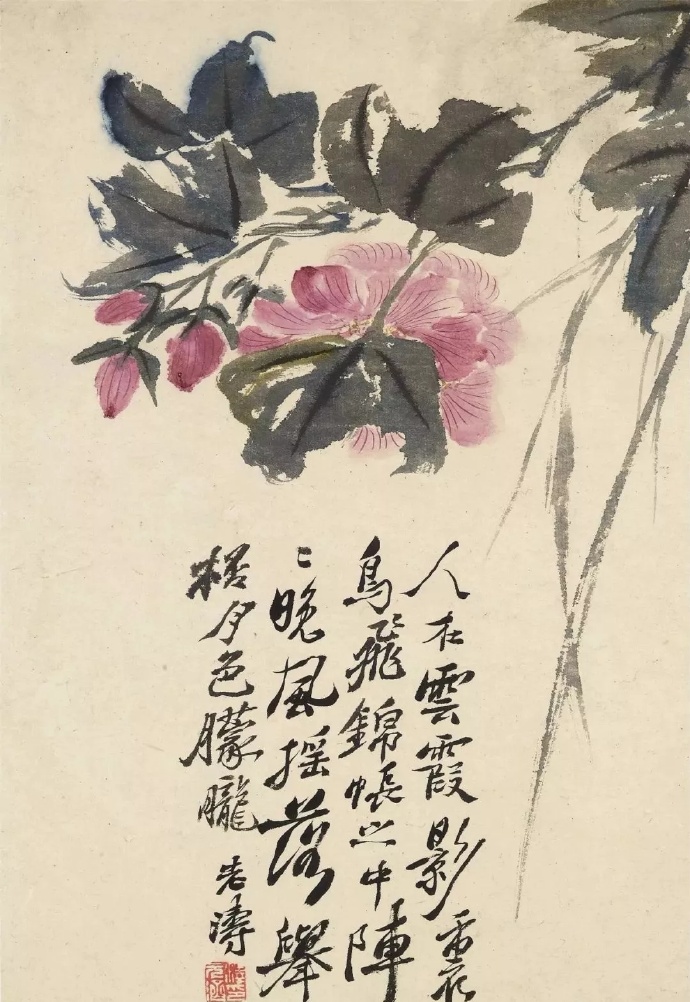 人在雲霞影裏
鳥飛錦帳之中陣
〻晚風摇落舉
夕色朦朧
老濤